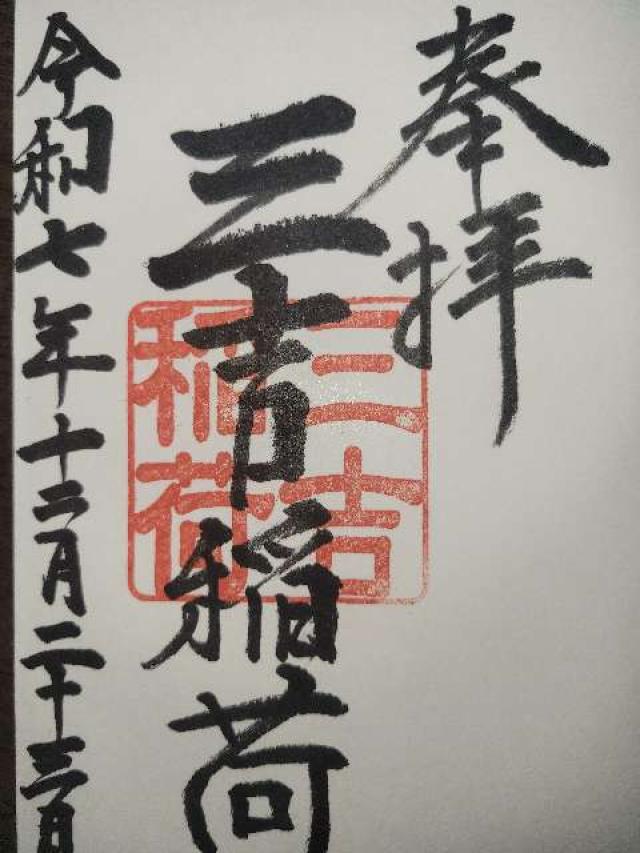 奉拝
三吉稲荷
三吉
稲荷
令和七年十二月二十三日